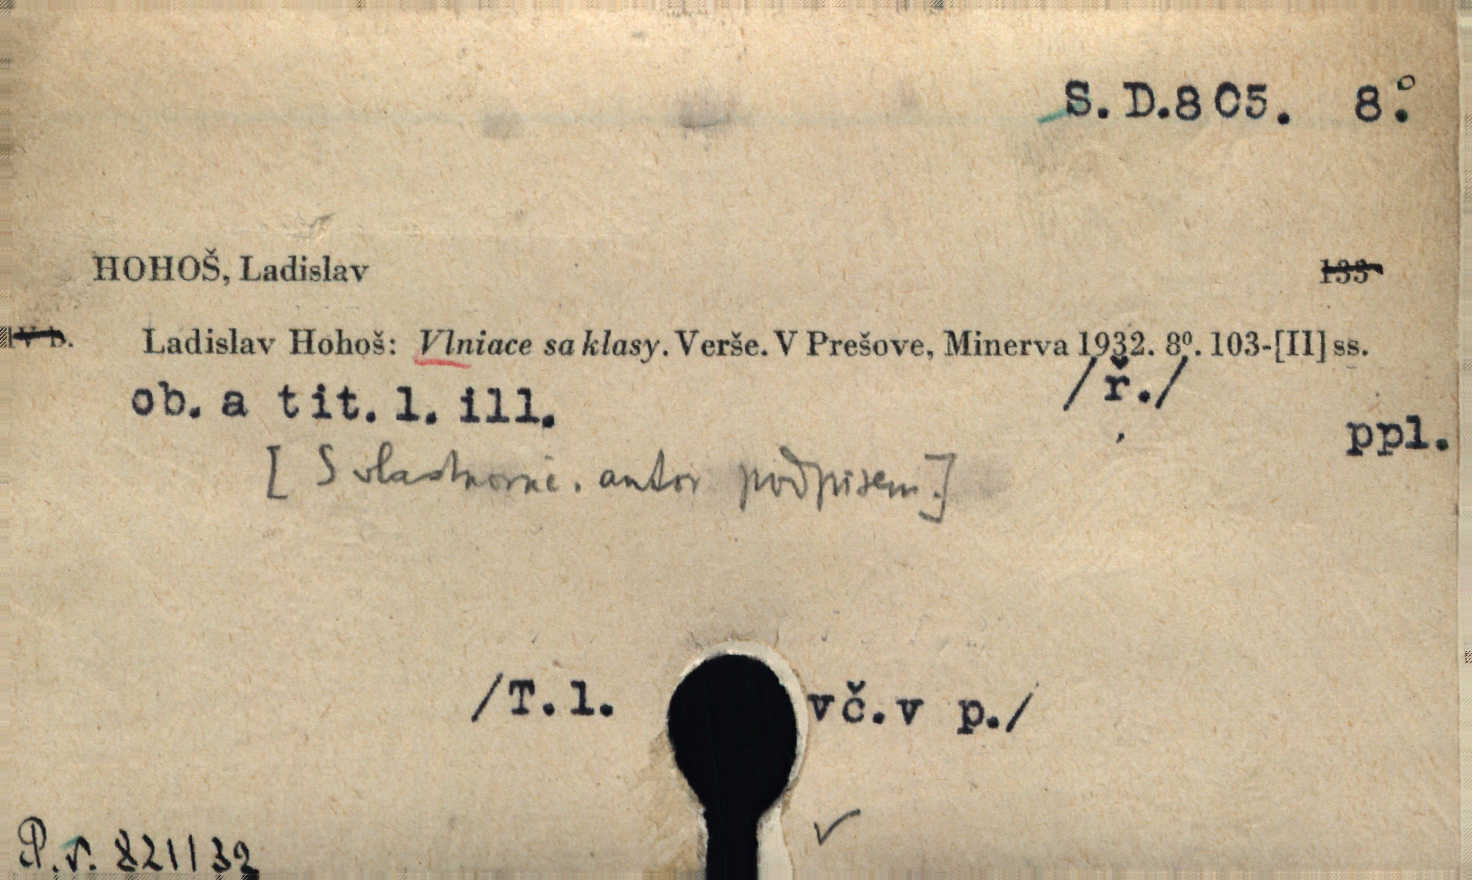 S.D.805. 8.°
HOHOŠ, Ladislav 133
IV b. Ladislav Hohoš: Vlniace sa klasy. Verše. V Prešove, Minerva 1932. 8⁰. 103-[II] ss.
ob. a tit. l. ill. /ř./
ppl.
[S vlastnoruč. autor podpisem.]
/T. l. vč. v p./
P. r. 821/32